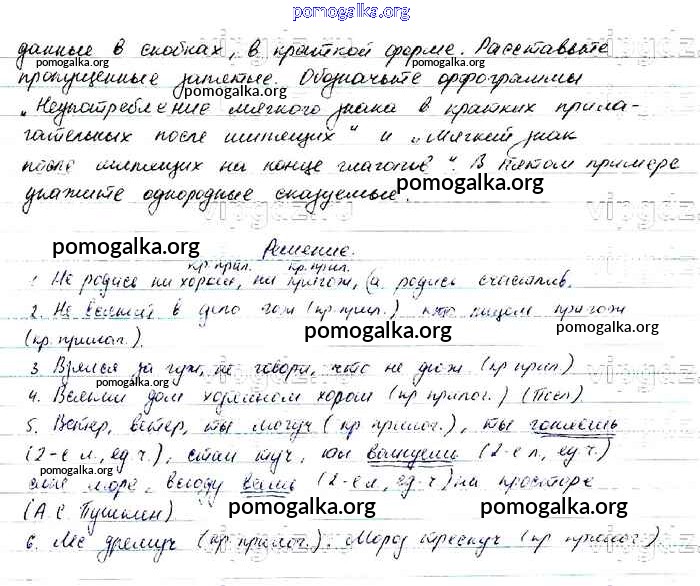 pomogalka.org
данные в скобках, в краткой форме. Расставьте
пропущенные запятые. Обозначьте орфограммы
„Неупотребление мягкого знака в кратких прила-
гательных после шипящих" и „Мягкий знак
после шипящих на конце глаголов". В пятом примере
pomogalka.org
укажите однородные сказуемые.
pomogalka.org
Решение.
кр. прил. кр. прил.
1. Не родись ни хорош, ни пригож, а родись счастлив.
pomogalka.org
2. Не всякий в дело гож (кр. прил.) кто лицом пригож
pomogalka.org
pomogalka.org
(кр. прилаг.).
3. Взялся за гуж, не говори, что не дюж (кр прил)
pomogalka.org
4. дом хозяином хорош (кр прилаг.) (Посл)
5. Ветер, ветер, ты могуч (кр прилаг.), ты гоняешь
(2-е л, ед ч.), стаи туч, ты волнуешь (2-е л, ед ч.)
pomogalka.org
сине море, всюду веешь (2-е л, ед. ч) на просторе
pomogalka.org
pomogalka.org
(А С Пушкин)
6. Лес дремуч (кр прилаг.). Мороз трескуч (кр прилаг.)